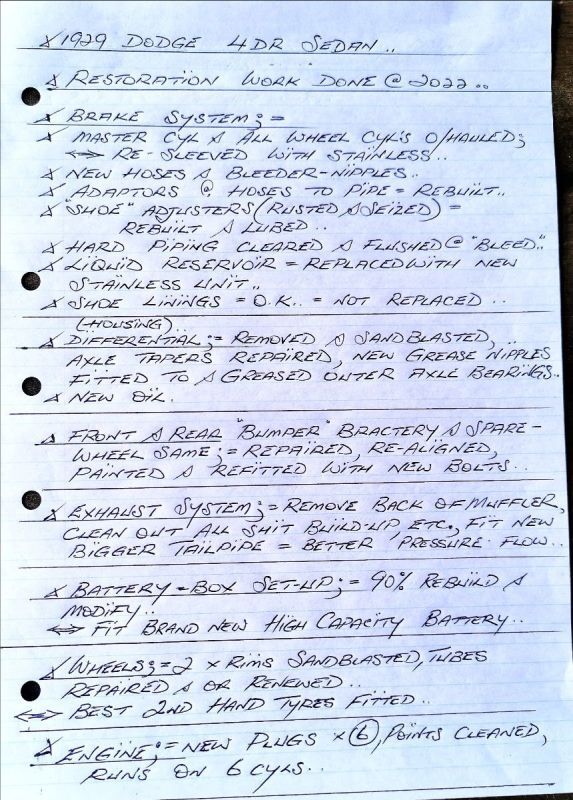 x 1929 DODGE 4DR SEDAN..
x RESTORATION WORK DONE @ 2022..
x BRAKE SYSTEM; =
x MASTER CYL & ALL WHEEL CYL'S O/HAULED;
<-> RE-SLEEVED WITH STAINLESS..
x NEW HOSES & BLEEDER-NIPPLES..
x ADAPTORS @ HOSES TO PIPE = REBUILT..
x "SHOE" ADJUSTERS (RUSTED & SEIZED) =
REBUILT & LUBED..
x HARD PIPING CLEARED & FLUSHED @ "BLEED"..
x LIQUID RESERVOIR = REPLACED WITH NEW
STAINLESS UNIT..
x SHOE LININGS = O.K.. = NOT REPLACED..
(HOUSING)..
x DIFFERENTIAL; = REMOVED & SANDBLASTED,..
AXLE TAPERS REPAIRED, NEW GREASE NIPPLES
FITTED TO & GREASED OUTER AXLE BEARINGS..
x NEW OIL.
x FRONT & REAR "BUMPER" BRACTERY & SPARE-
WHEEL SAME; = REPAIRED, RE-ALIGNED,
PAINTED & REFITTED WITH NEW BOLTS..
x EXHAUST SYSTEM; = REMOVE BACK OF MUFFLER,
CLEAN OUT ALL SHIT BUILD-UP ETC., FIT NEW
BIGGER TAILPIPE = BETTER PRESSURE FLOW..
x BATTERY-BOX SET-UP; = 90% REBUILD &
MODIFY..
<-> FIT BRAND NEW HIGH CAPACITY BATTERY..
x WHEELS; = 2 x RIMS SANDBLASTED, TUBES
REPAIRED & OR RENEWED..
<-> BEST 2ND HAND TYRES FITTED..
x ENGINE; = NEW PLUGS x 6, POINTS CLEANED,
RUNS ON 6 CYLS..